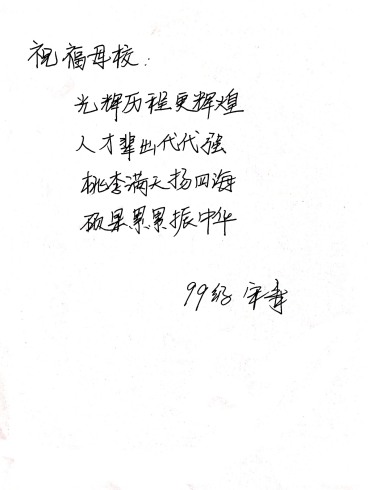 祝福母校：
光辉历程更辉煌
人才辈出代代强
桃李满天扬四海
硕果累累振中华
99级 宋